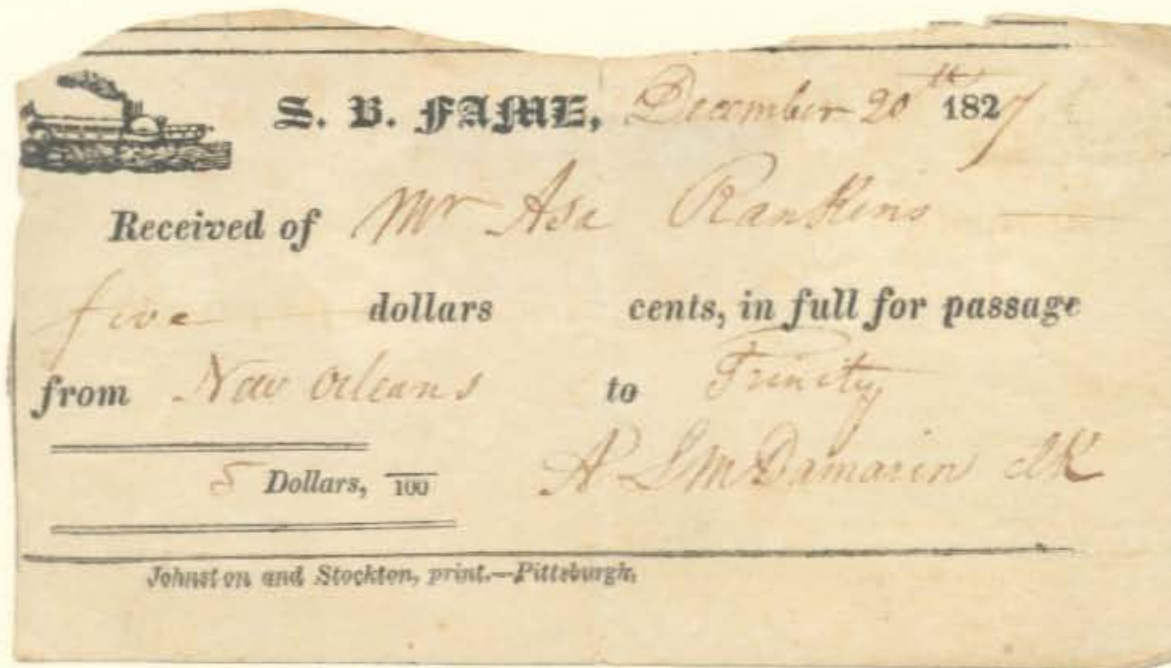 S. B. FAME, December 20th 1827
Received of Mr Asa Rankins
five dollars cents, in full for passage
from New Orleans to Trinity
5 Dollars, /100 A L M Damarin clk
Johnston and Stockton, print.—Pittsburgh.